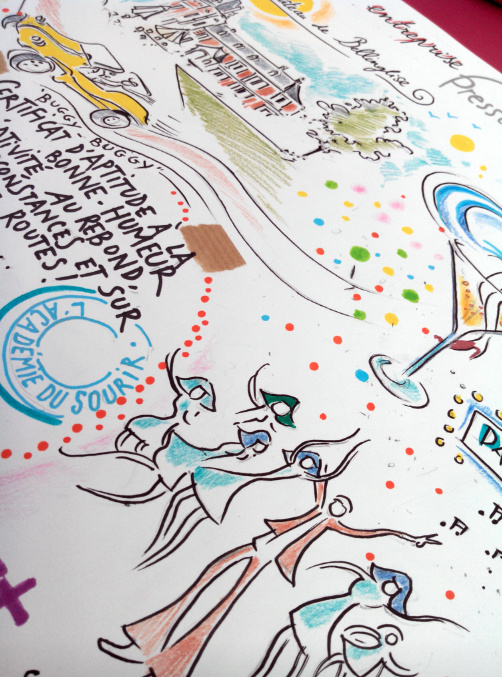 entreprise
de Bellinglise
presse
BUGGY-BUGGY.
CERTIFICAT D'APTITUDE À LA
BONNE-HUMEUR
ATIVITÉ AU REBOND,
CONSTANCES ET SUR
ROUTES !
L'ACADÉMIE DU SOURIR.